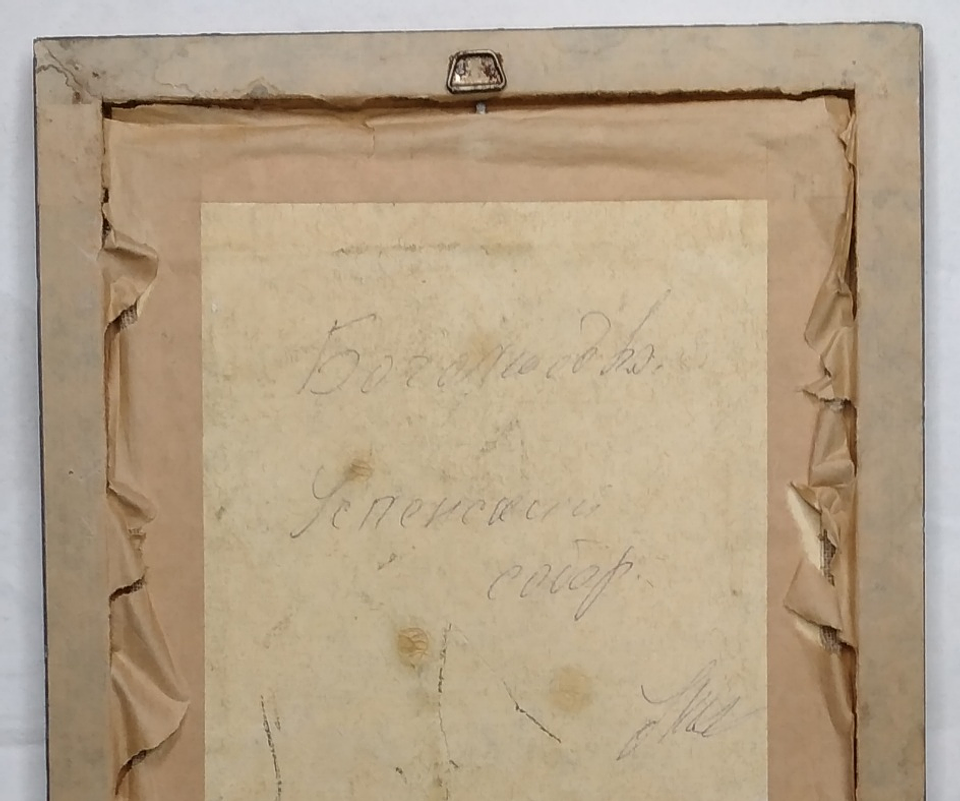 Боголюбов.
Успенский
собор.